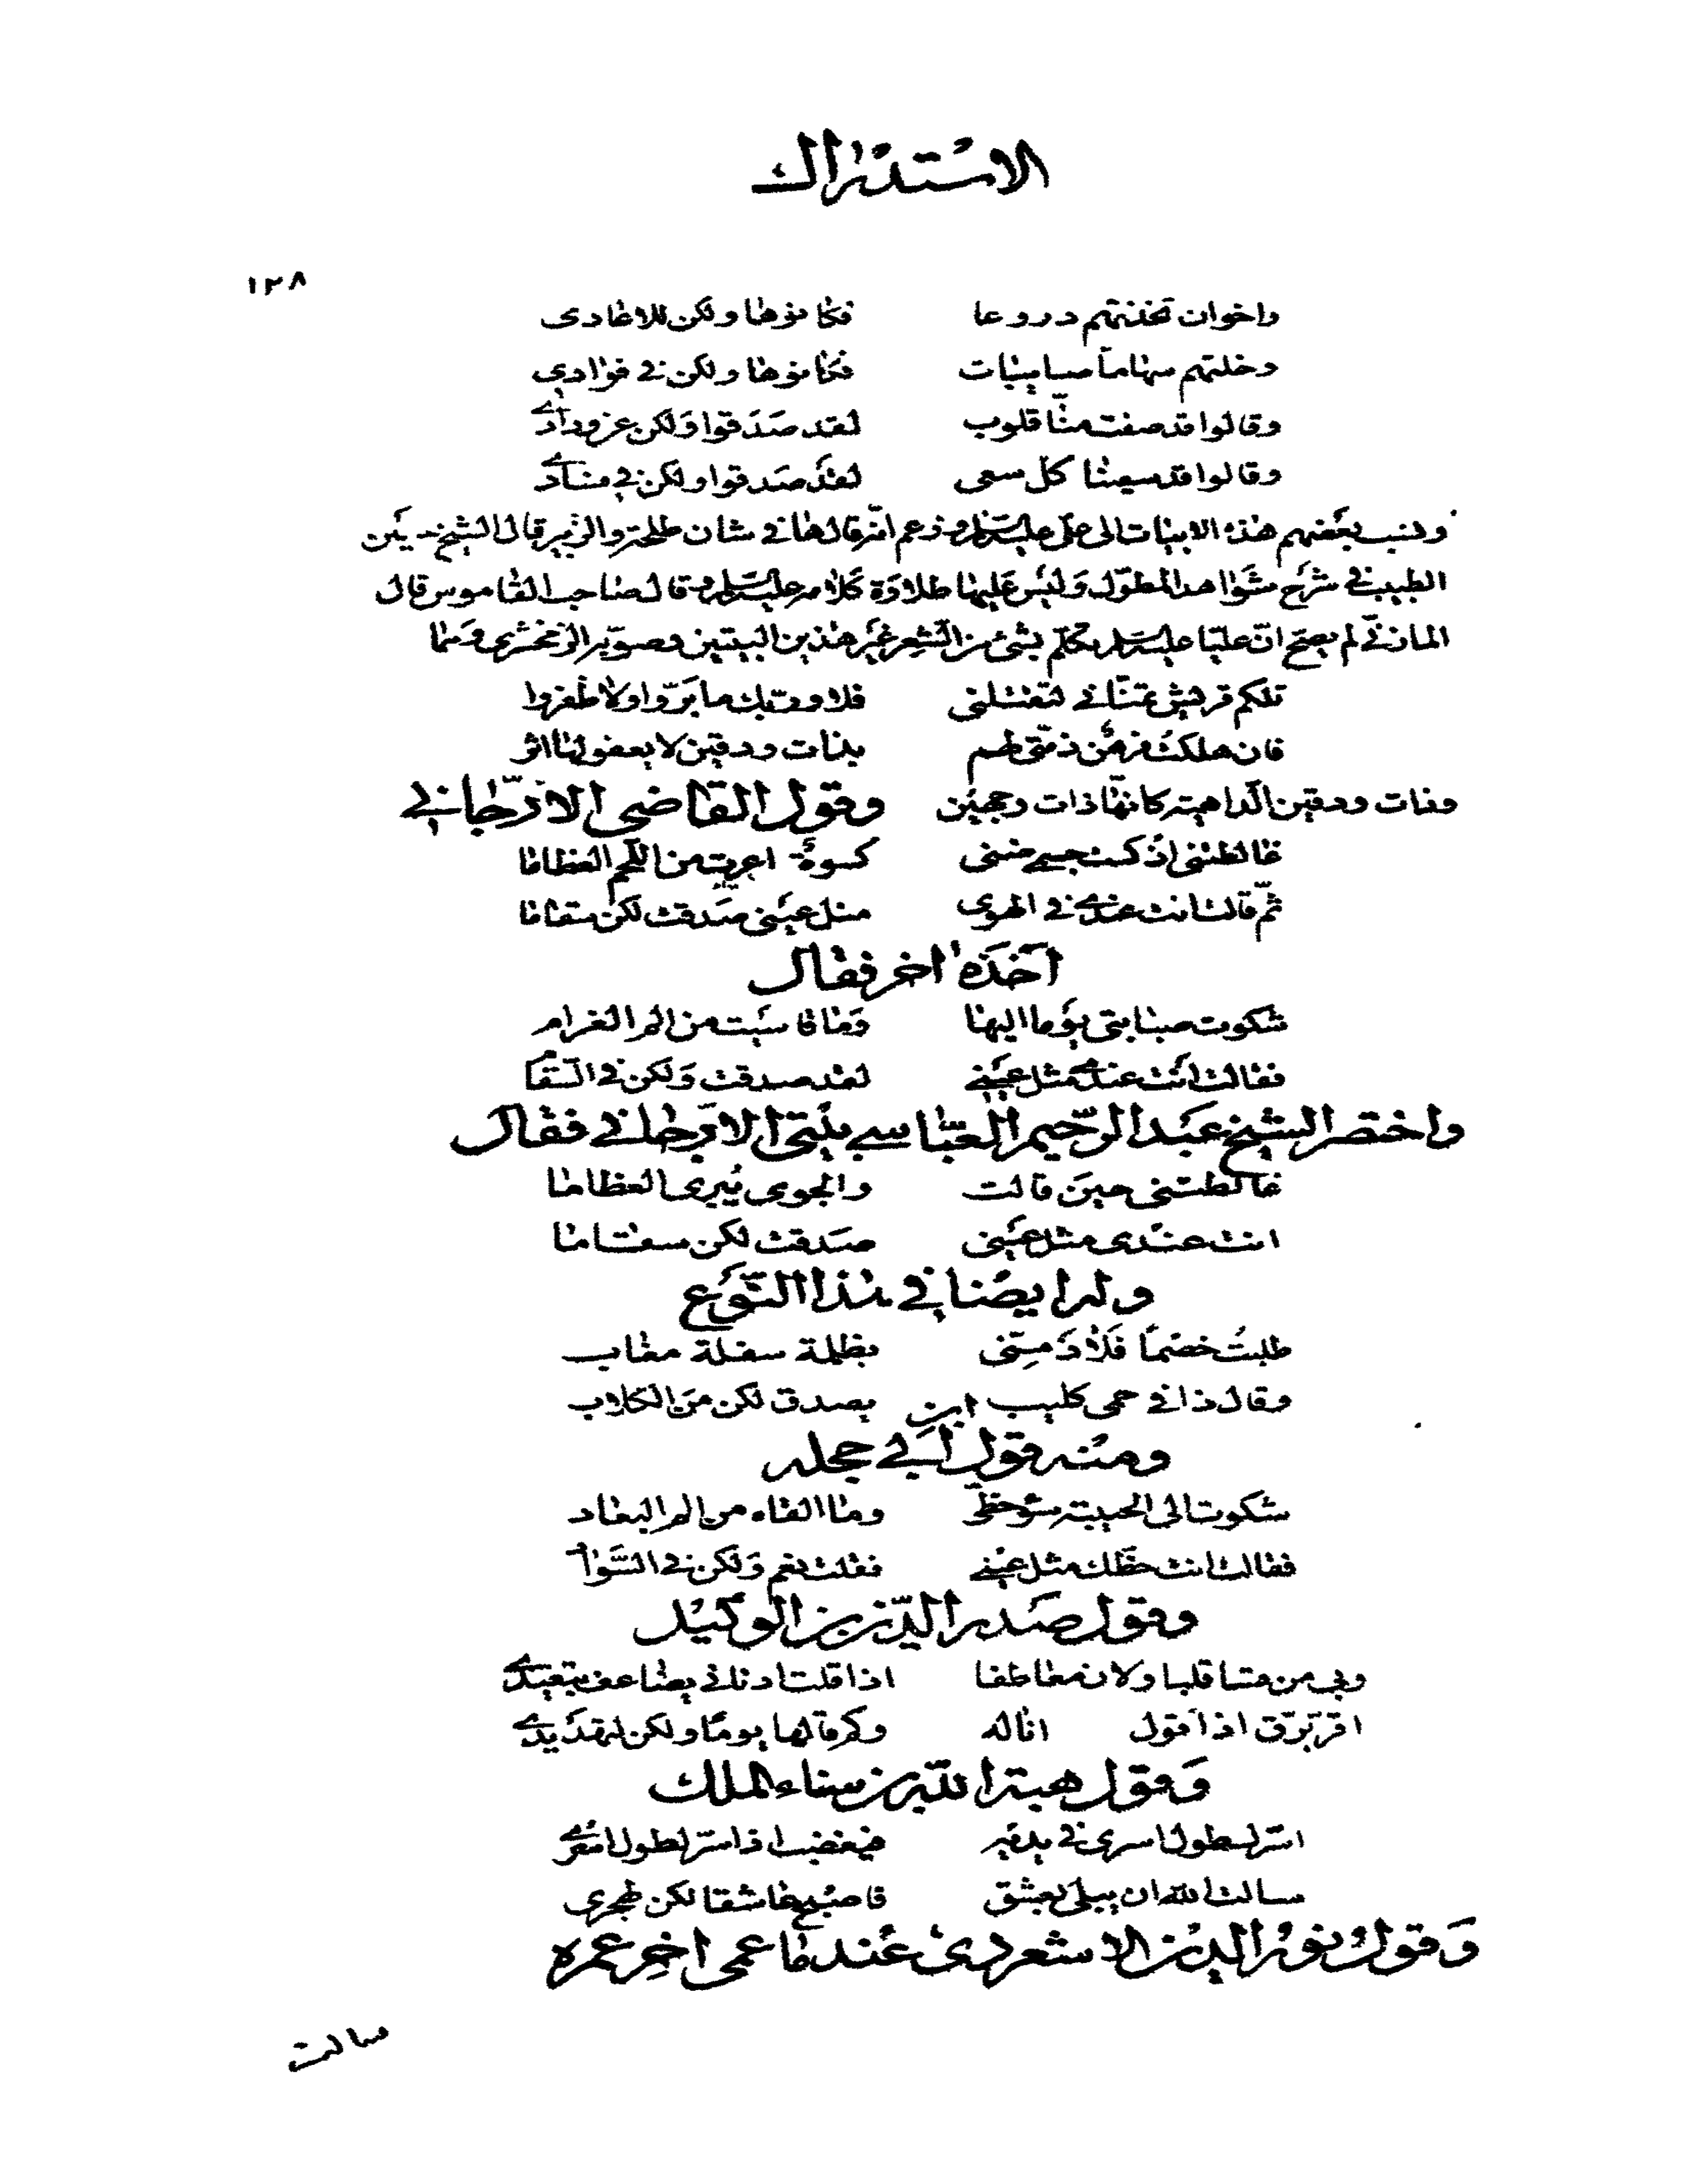 الاستدراك
١٢٨
واخوان تخذتهم دروعا فكانوها ولكن للاعادى
وخلتهم سهاما صايبات فكانوها ولكن في فوادي
وقالوا قد صفت منا قلوب لقد صدقوا ولكن عن ودادي
وقالوا قد سعينا كل سعى لقد صدقوا ولكن في فسادي
ونسب بعضهم هذه الابيات الى على عليه السلام وزعم انه قالها في شان طلحة والزبير قال الشيخ
الطيب في شرح شواهد المطول وليس عليها طلاوة كلامه عليه السلام وقال صاحب القاموس قال
المازني لم يصح ان عليا عليه السلام تكلم بشئ من الشعر غير هذين البيتين وصوبه الزمخشرى وهما
تلكم قريش تمناني لتقتلنى فلا وربك ما بروا ولا ظفروا
فان هلكت فرهن ذمتى لهم بذات ودقين لا يعفو لها اثر
وذات ودقين الداهية كانها ذات وجهين وقول القاضى الارجاني
غالطتنى اذ كست جسمى ضنى كسوة اعرت من اللحم العظاما
ثم قالت انت عندي في الهوى مثل عينى صدقت لكن سقاما
اخذه اخر فقال
شكوت صبابتى يوما اليها وما قاسيت من الم الغرام
فقالت انت عندي مثل عيني لقد صدقت ولكن في السقا
واختصر الشيخ عبد الرحيم العباسي بيتى الارجاني فقال
غالطتنى حين قالت والجوى يبرى العظاما
انت عندى مثل عينى صدقت لكن سقاما
وله ايضا في هذا النوع
طلبت خصما فلاذ منى بظلمة سفلة معاب
وقال ذا في حمى كليب يصدق لكن من الكلاب
ومنه قول ابن ابي حجله
شكوت الى الحبيبة سوء حظى وما القاه من الم البعاد
فقالت انت حظك مثل عيني فقلت نعم ولكن في السوا
وقول صدر الدين بن الوكيل
وبي من قسا قلبا ولان معاطفا اذا قلت ادناني يضاعف تبعيدي
اقر برق اذ اقول اناله وكم قالها يوما ولكن لتهديدي
وقول هبة الله بن سناء الملك
اسر لطول اسرى في يديه فيغضب اذ اسر لطول اسري
سالت الله ان يبلى بعشق فاصبح عاشقا لكن لهجرى
وقول نور الدين الاسعردى عند ما عمى اخر عمره
سالت